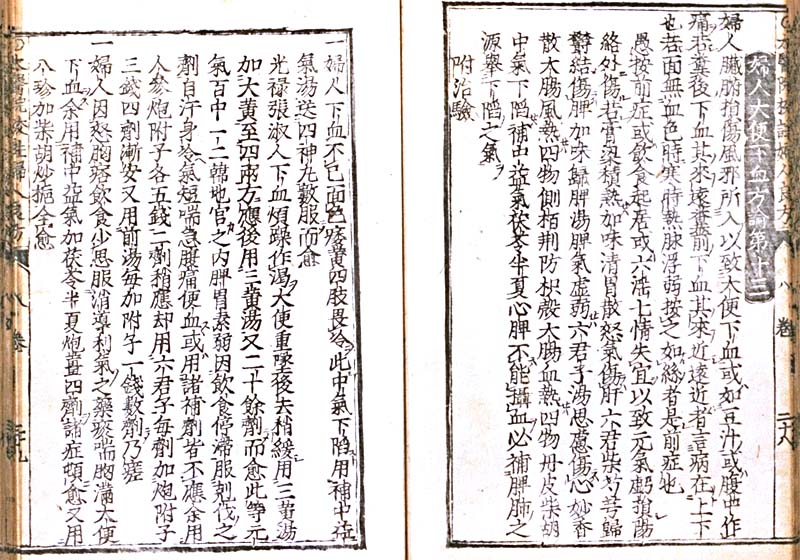 婦人大便下血方論第十三
婦人臟腑損傷風邪所入以致大便下血或如豆汁或腹中作
痛否糞後下血其來遠糞前下血其來近遠近者言病在上下
也若面無血色時寒時熱脉浮弱按之如絲者是前症也
愚按前症或飲食起居或六淫七情失宜以致元氣虧損陽
絡外傷若膏粱積熱加味清胃散怒氣傷肝六君柴芍芎歸
鬱結傷脾加味歸脾湯脾氣虛弱六君子湯思慮傷心妙香
散大腸風熱四物側栢荆防枳殼大腸血熱四物丹皮柴胡
中氣下陷補中益氣茯苓半夏心脾不能攝血必補脾肺之
源舉下陷之氣
附治驗
一婦人下血不已面色痿黃四肢畏冷此中氣下陷用補中益
氣湯送四神丸數服而愈
光禄張淑人下血煩躁作渴大便重墜後去稍緩用三黃湯
加大黃至四兩方應後用三黃湯又二十餘劑而愈此等元
氣百中一二韓地官之内脾胃素弱因飲食停滯服剋伐之
劑自汗身冷氣短喘急腹痛便血或用諸補劑皆不應余用
人參炮附子各五錢二劑稍應却用六君子每劑加炮附子
三錢四劑漸安又用前湯每加附子一錢數劑乃瘥
一婦人因怒胸痞飲食少思服消導利氣之藥痰喘胸滿大便
下血余用補中益氣加茯苓半夏炮薑四劑諸症頓愈又用
八珍加柴胡炒梔全愈